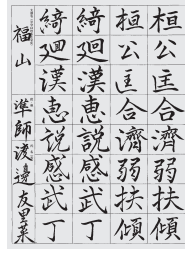 桓公匡合濟弱扶傾
桓公匡合濟弱扶傾
綺廻漢恵説感武丁
綺廻漢恵説感武丁
福山 準師 渡邊友里菜